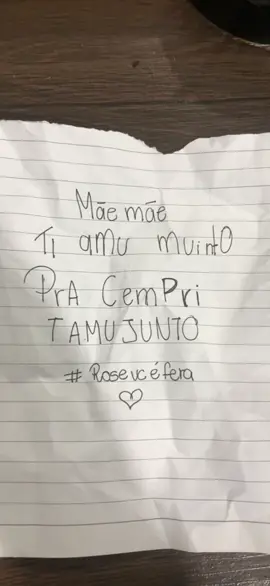 Mãe mãe
Ti amu muintO
PrA CemPri
TAMUJUNTO
# Rosevcéfera